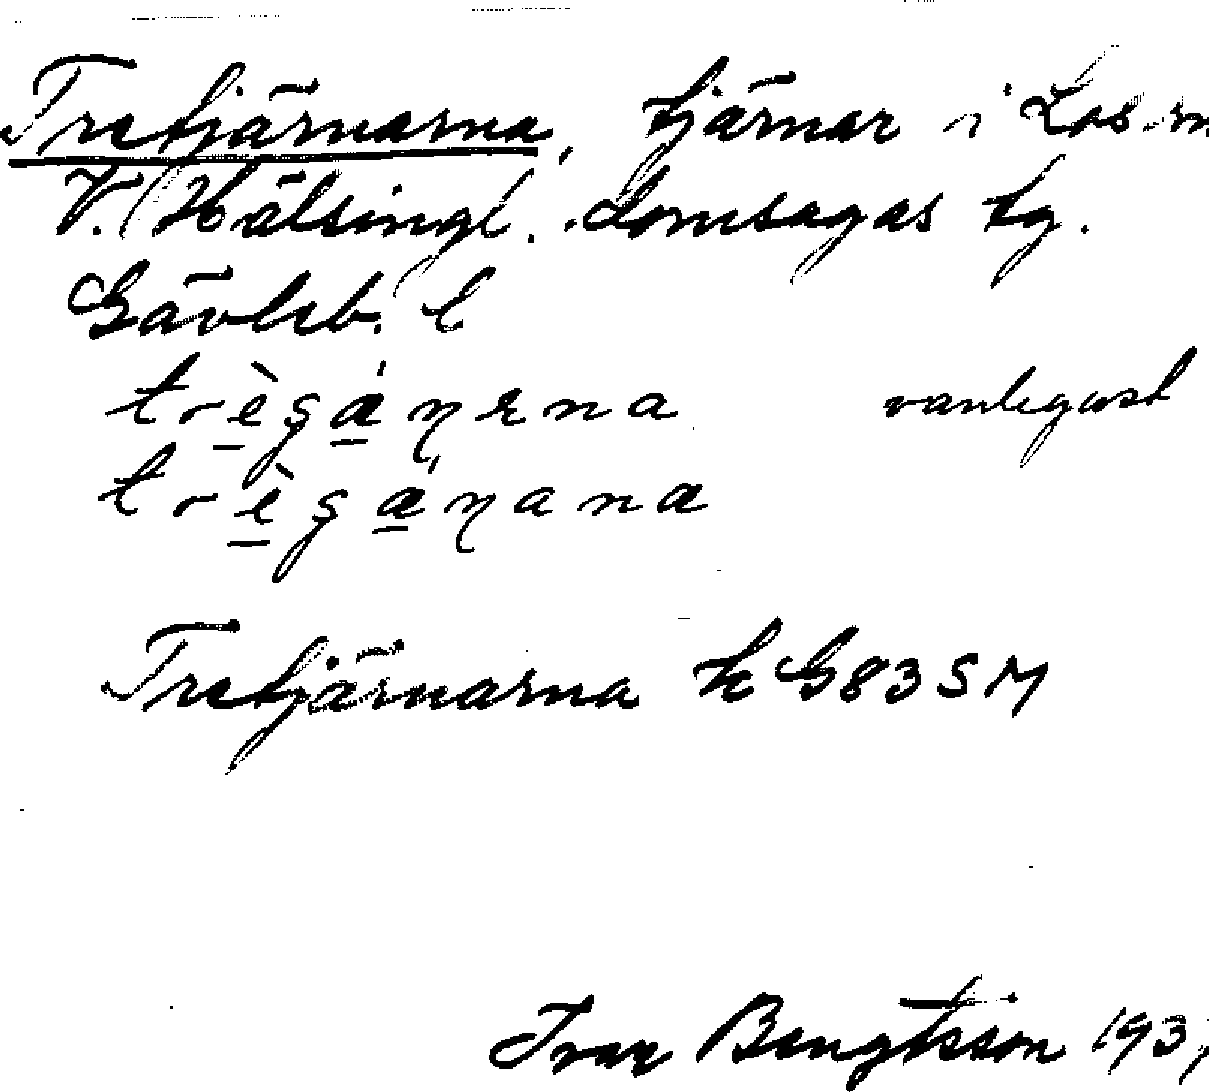 Tretjärnarna, tjärnar i Los sn
V. Hälsingl. domsagas tg.
Gävleb. l
trègä́ṇrna vanligast
trègä́ṇana
Tretjärnarna k G83SM
Ivar Bengtsson 193